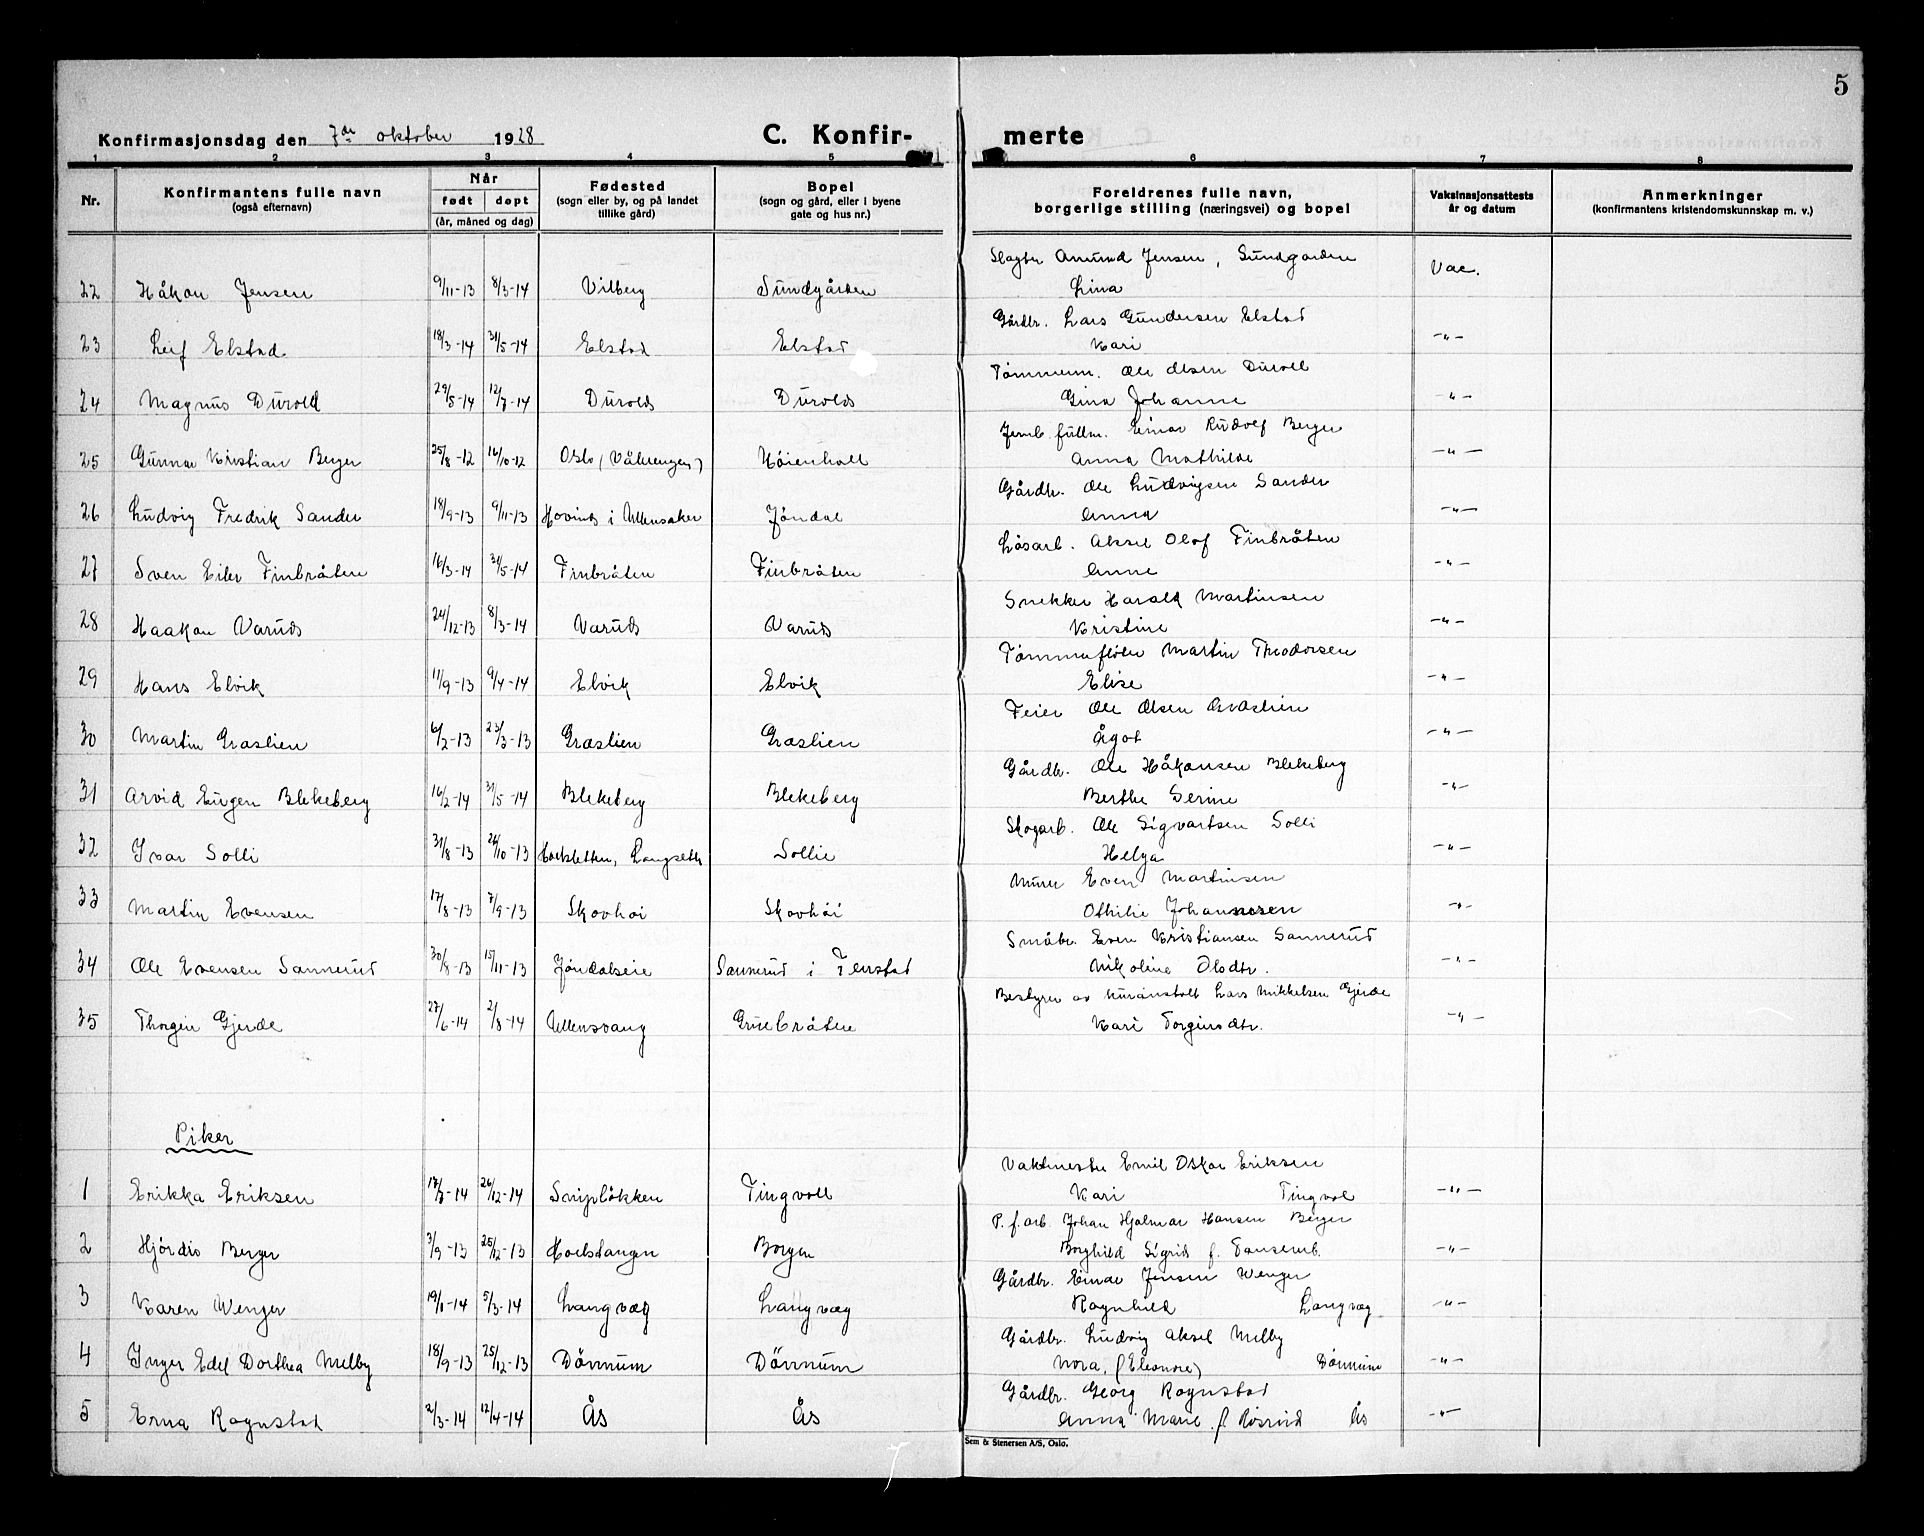 5
Konfirmasjonsdag den 7de oktober 1928 C. Konfirmerte
1 2 3 4 5 6 7 8
Nr. Konfirmantens fulle navn (også efternavn) Når født døpt (år, måned og dag) Fødested (sogn eller by, og på landet tillike gård) Bopel (sogn og gård, eller i byene gate og hus nr.) Foreldrenes fulle navn, borgerlige stilling (næringsvei) og bopel Vaksinasjonsattests år og datum Anmerkninger (konfirmantens kristendomskunnskap m. v.)
Slagter Amund Jensen, Sundgården
22 Håkon Jensen 9/11-13 8/3-14 Vilberg Sundgården Lina Vac.
Gårdbr. Lars Gundersen Elstad
23 Leif Elstad 18/3-14 31/5-14 Elstad Elstad Kari -"-
Tømmerm. Ole Olsen Durold
24 Magnus Durold 29/5-14 12/7-14 Durold Durold Gina Johanne -"-
Jernb. fullm. Einar Rudolf Berger
25 Gunnar Kristian Berger 25/8-12 16/10-12 Oslo (Vålerengen) Høienhall Anna Mathilde -"-
Gårdbr. Ole Ludvigsen Sander
26 Ludvig Fredrik Sander 18/9-13 9/11-13 Hovind i Ullensaker Jøndal Anna -"-
Løsarb. Aksel Olof Finbråten
27 Sven Eilev Finbråten 16/3-14 31/5-14 Finbråten Finbråten Anne -"-
Snekker Harald Martinsen
28 Haakon Varud 24/12-13 8/3-14 Varud Varud Kristine -"-
Tømmerfløter Martin Theodorsen
29 Hans Elvik 11/9-13 9/4-14 Elvik Elvik Elise -"-
Feier Ole Olsen
30 Martin Graslien 6/2-13 23/3-13 Graslien Graslien Ågot -"-
Gårdbr. Ole Håkonsen Blekeberg
31 Arvid Eugen Blekeberg 16/2-14 31/5-14 Blekeberg Blekeberg Berthe Serine -"-
Skogarb. Ole Sigvartsen Solli
32 Ivar Solli 31/8-13 26/10-13 Langseth Sollie Helga -"-
Murer Even Martinsen
33 Martin Evensen 17/8-13 7/9-13 Skovhøi Skovhøi Othilie Johannesen -"-
Småbr. Even Kristiansen Sannerud
34 Ole Evensen Sannerud 30/8-13 15/11-13 Jøndalseie Sannerud i Tenstad Nikoline Olsdtr. -"-
Bestyrer av kuranstalt Lars Mikkelsen Gjerde
35 Thorgeir Gjerde 27/6-14 2/8-14 Ullensvang Gruebråten Kari Torgeirsdtr. -"-
Piker
Vaktmester Emil Oskar Eriksen
1 Erikka Eriksen 17/7-14 26/12-14 Snipløkken Tingvoll Kari Tingvol -"-
P. f. arb. Johan Hjalmar Hansen Berger
2 Hjördis Berger 3/9-13 25/12-13 Holstangen Borgen Borghild Sigrid f. -"-
Gårdbr. Einar Jensen Wenger
3 Karen Wenger 19/1-14 5/3-14 Langvæg Langvæg Ragnhild Langvæg -"-
Gårdbr. Ludvig Aksel Melby
4 Inger Edel Dorthea Melby 18/9-13 25/12-13 Dönnum Dönnum Nora, (Eleonore) Dönnum -"-
Gårdbr. Georg Rognstad
5 Erna Rognstad 2/3-14 12/4-14 Ås Ås Anna Marie f. Røsrud Ås -"-
Sem & Stenersen A/S, Oslo.